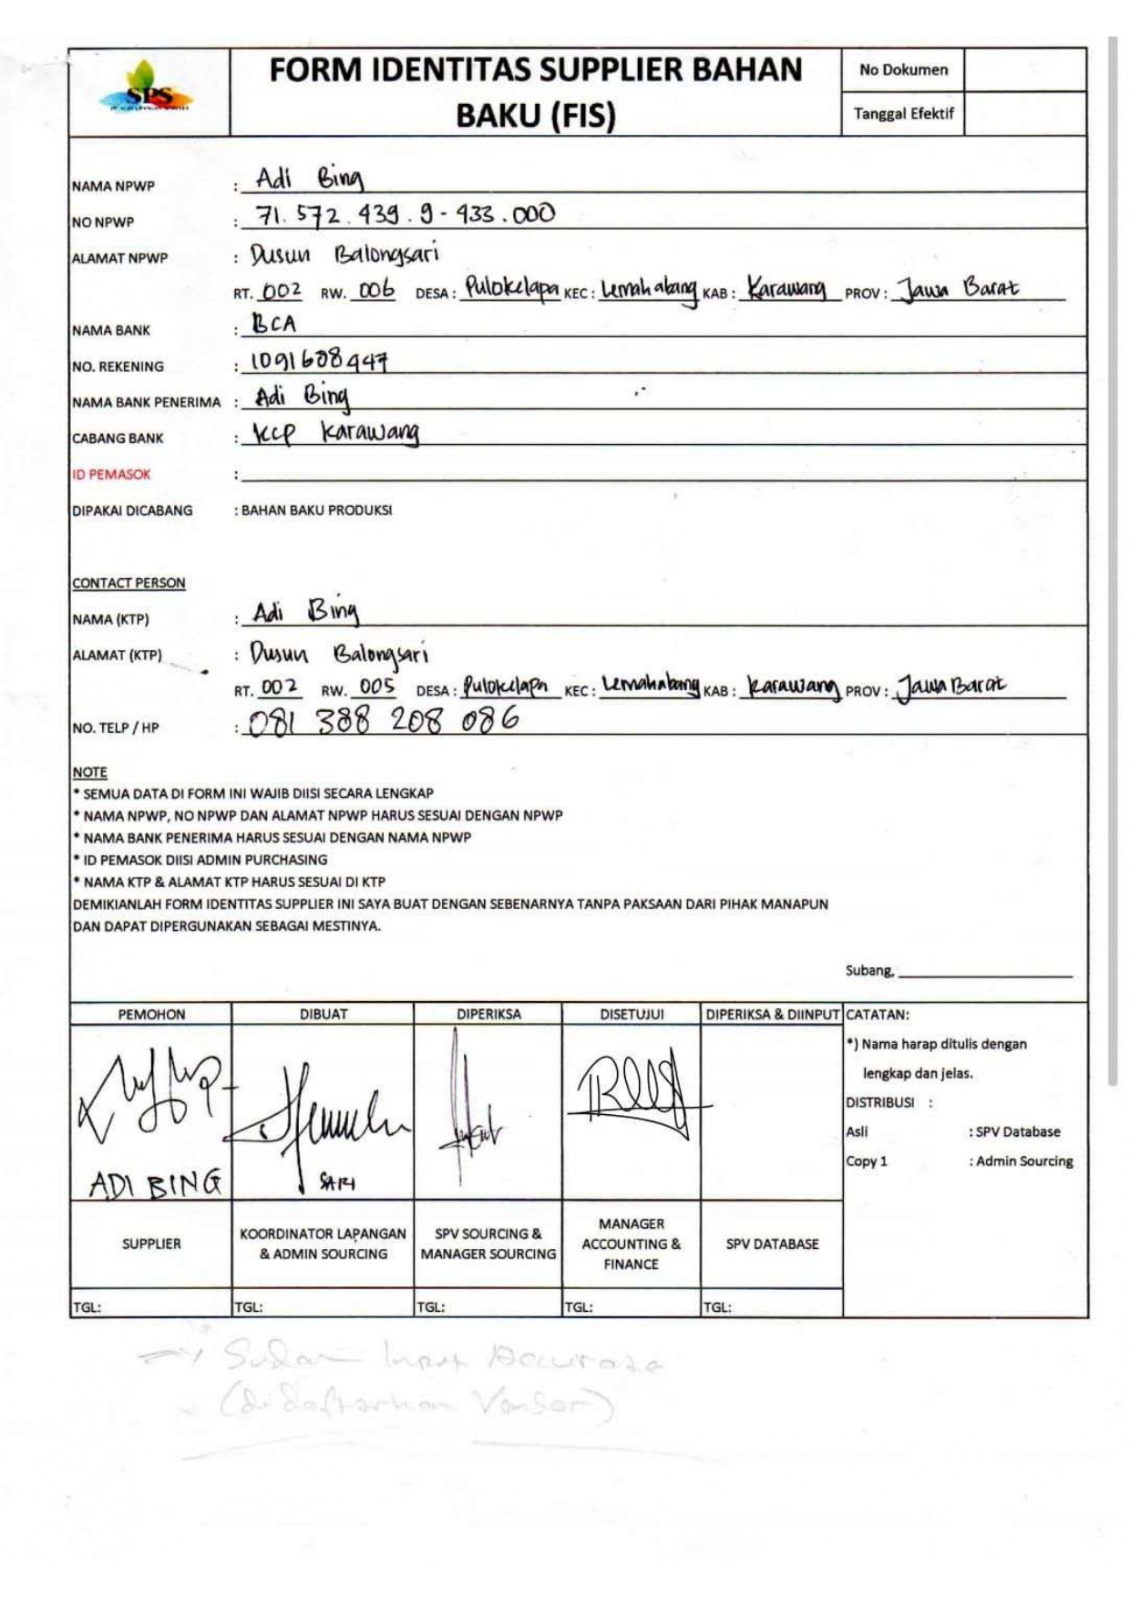 SPS
FORM IDENTITAS SUPPLIER BAHAN
BAKU (FIS)
No Dokumen
Tanggal Efektif
NAMA NPWP : Adi Bing
NO NPWP : 71.572.439.9-433.000
ALAMAT NPWP : Dusun Balongsari
RT. 002 RW. 006 DESA : Pulokelapa KEC : Lemahabang KAB : Karawang PROV : Jawa Barat
NAMA BANK : BCA
NO. REKENING : 1091608447
NAMA BANK PENERIMA : Adi Bing
CABANG BANK : KCP Karawang
ID PEMASOK :
DIPAKAI DICABANG : BAHAN BAKU PRODUKSI
CONTACT PERSON
NAMA (KTP) : Adi Bing
ALAMAT (KTP) : Dusun Balongsari
RT. 002 RW. 005 DESA : Pulokelapa KEC : Lemahabang KAB : Karawang PROV : Jawa Barat
NO. TELP / HP : 081 388 208 086
NOTE
* SEMUA DATA DI FORM INI WAJIB DIISI SECARA LENGKAP
* NAMA NPWP, NO NPWP DAN ALAMAT NPWP HARUS SESUAI DENGAN NPWP
* NAMA BANK PENERIMA HARUS SESUAI DENGAN NAMA NPWP
* ID PEMASOK DIISI ADMIN PURCHASING
* NAMA KTP & ALAMAT KTP HARUS SESUAI DI KTP
DEMIKIANLAH FORM IDENTITAS SUPPLIER INI SAYA BUAT DENGAN SEBENARNYA TANPA PAKSAAN DARI PIHAK MANAPUN
DAN DAPAT DIPERGUNAKAN SEBAGAI MESTINYA.
Subang,
PEMOHON DIBUAT DIPERIKSA DISETUJUI DIPERIKSA & DIINPUT CATATAN:
*) Nama harap ditulis dengan
lengkap dan jelas.
DISTRIBUSI :
Asli : SPV Database
Copy 1 : Admin Sourcing
ADI BING SARI
SUPPLIER
KOORDINATOR LAPANGAN
& ADMIN SOURCING
SPV SOURCING &
MANAGER SOURCING
MANAGER
ACCOUNTING &
FINANCE
SPV DATABASE
TGL: TGL: TGL: TGL: TGL:
Sudah Input Accurate
(didaftarkan Vendor)